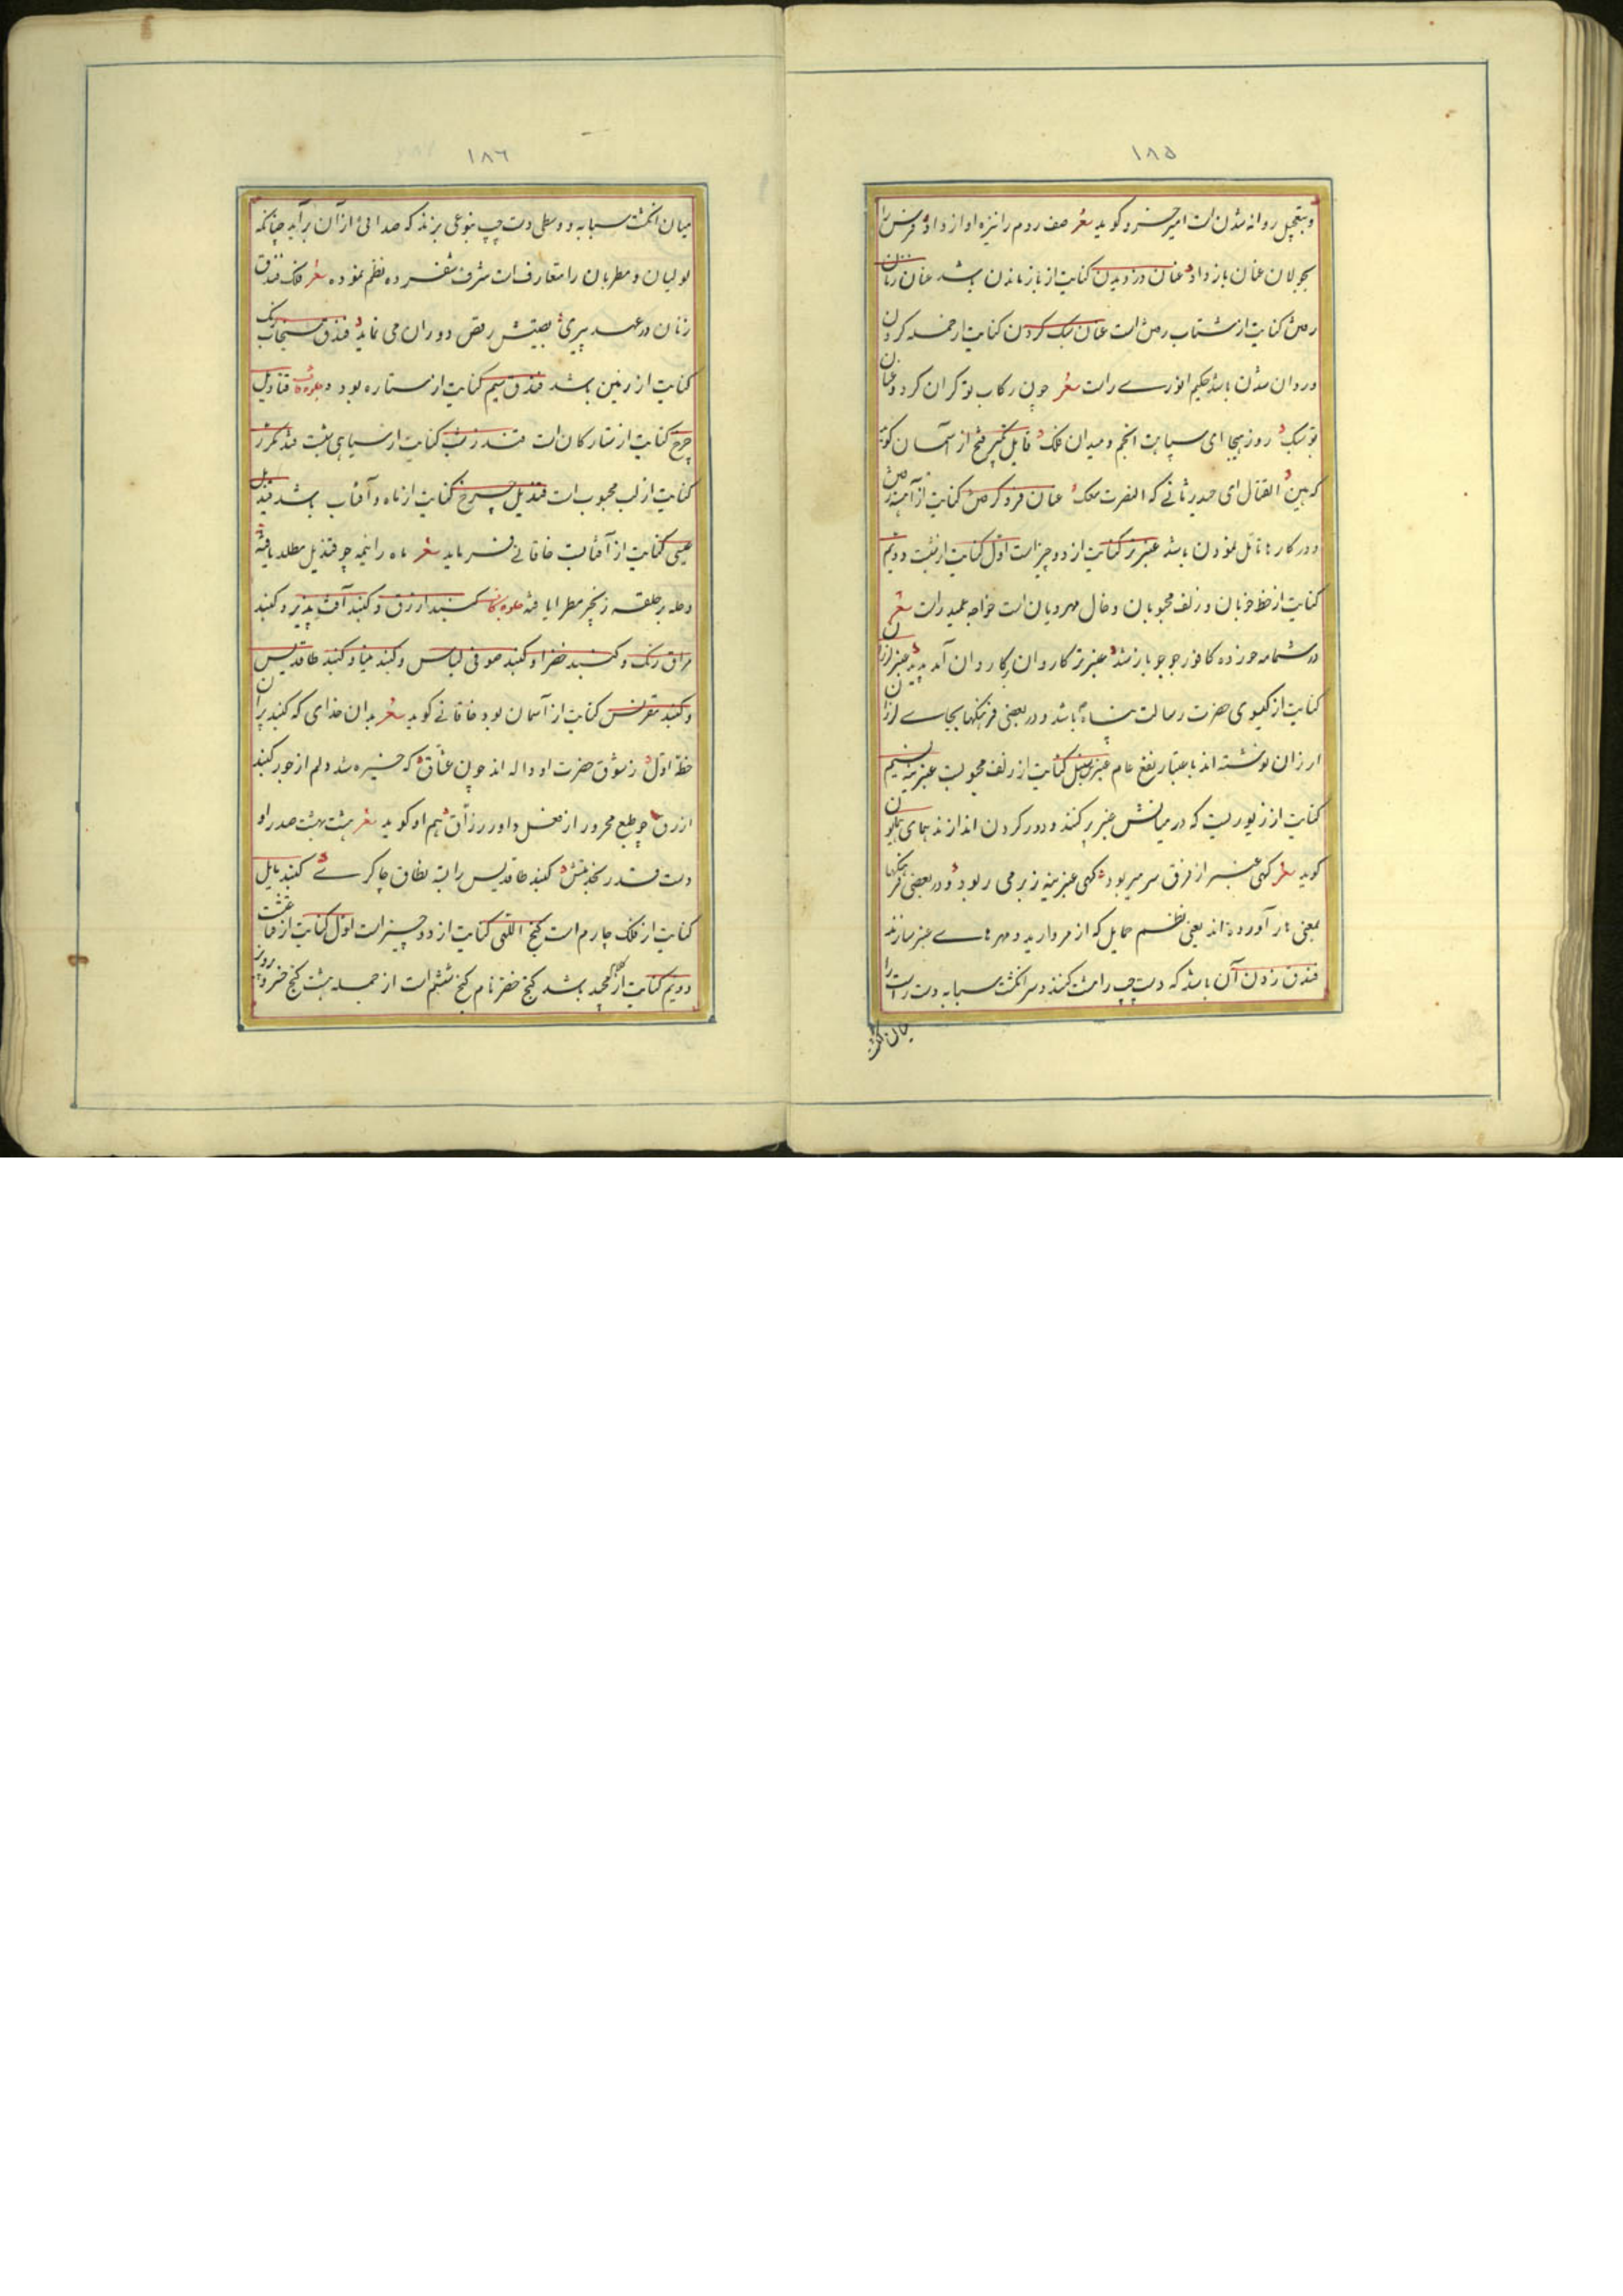 ١٨٥
وبتعجیل روانه شدن است امیر خسرو کوید شعر صف روم را نیزه او از داد فرس را
بجولان عنان باز داد عنان دزدیدن کنایت از باز ماندن باشد عنان زنان
رفتن کنایت از شتاب رفتن است عنان سبک کردن کنایت از حمله کردن
وروان شدن باشد حکیم انوری راست شعر چون رکاب تو کران کردد وعنان
تو سبک روز هیجا ای سپاهت انجم ومیدان فلک قابل تکبیر فتح از آسمان کوید
که هین القتال ای حیدر ثانی که النصرت معک عنان فرو کرفتن کنایت از آهسته رفتن
ودر کارها تامل نمودن باشد عنبر تر کنایت از دو چیز است اول کنایت از شب دویم
کنایت از خط خوبان وزلف محبوبان وخال مهرویان است خواجه عمید راست شعر
در شمامه خور ده کافور جو جو بار شد عنبر تر کاروان بر کاروان آمد پدید عنبر لرزان
کنایت از کیسوی حضرت رسالت پناه باشد ودر بعضی فرهنکها بجای لرزان
ارزان نوشته اند باعتبار نفع عام عنبرین سنبل کنایت از زلف محبوبست عنبرینه نسیم
کنایت از زیوریست که در میانش عنبر پر کنند ودور کردن اندازند همای همایون
کوید شعر کهی عنبر از فرق سر میربود کهی عنبرینه ز بر می ربود ودر بعضی فرهنکها
بمعنی هار آورده اند یعنی نظم حمایل که از مروارید ومهرهای عنبر سازند
فندق زدن آن باشد که دست چپ را مشت کنند وسر انکشت سبابه دست راست را
میان انکشت
١٨٦
میان انکشت سبابه ووسطی دست چپ بنوعی بزند که صدائی از آن برآید چنانکه
لولیان ومطربان را متعارف است شرف شفروه نظم نموده شعر فلک فندق
زنان در عهد پیری بعیشش رقص دوران می نماید فندق سنجاب رنک
کنایت از زمین باشد فندق سیم کنایت از ستاره بود در جلوه قاف قنادیل
چرخ کنایت از ستارکان است قندز شب کنایت از سیاهی شب قند مکرر
کنایت از لب محبوب است قندیل چرخ کنایت از ماه وآفتاب باشد قندیل
عیسی کنایت از آفتابست خاقانی فرماید شعر ماه را نیمه چو قندیل مطلا یافته
وصد بر حلقه زنجیر مطرا یافته جلوه کاف کنبد ازرق وکنبد آفت پذیر وکنبد
براق رنک وکنبد خضرا وکنبد صوفی لباس وکنبد مینا وکنبد طاقدیس
وکنبد مقرنس کنایت از آسمان بود خاقانی کوید شعر بدان خدای که کنبد پران
خطه اول ز شوق حضرت او واله اند چون عشاق که خیره شد دلم از جور کنبد
ازرق چو طبع محرور از فضل داور رزاق هم او کوید شعر هشت بهشت صدر او
دست قدر نخدمتش کنبد طاقدیس را بسته نطاق چاکری کنبد مایل
کنایت از فلک چارم است کنج اللقی کنایت از دو چیز است اول کنایت از قناعت
دویم کنایت از کلام مجید باشد کنج خضر نام کنج ششم است از جمله هشت کنج خسرو پرویز